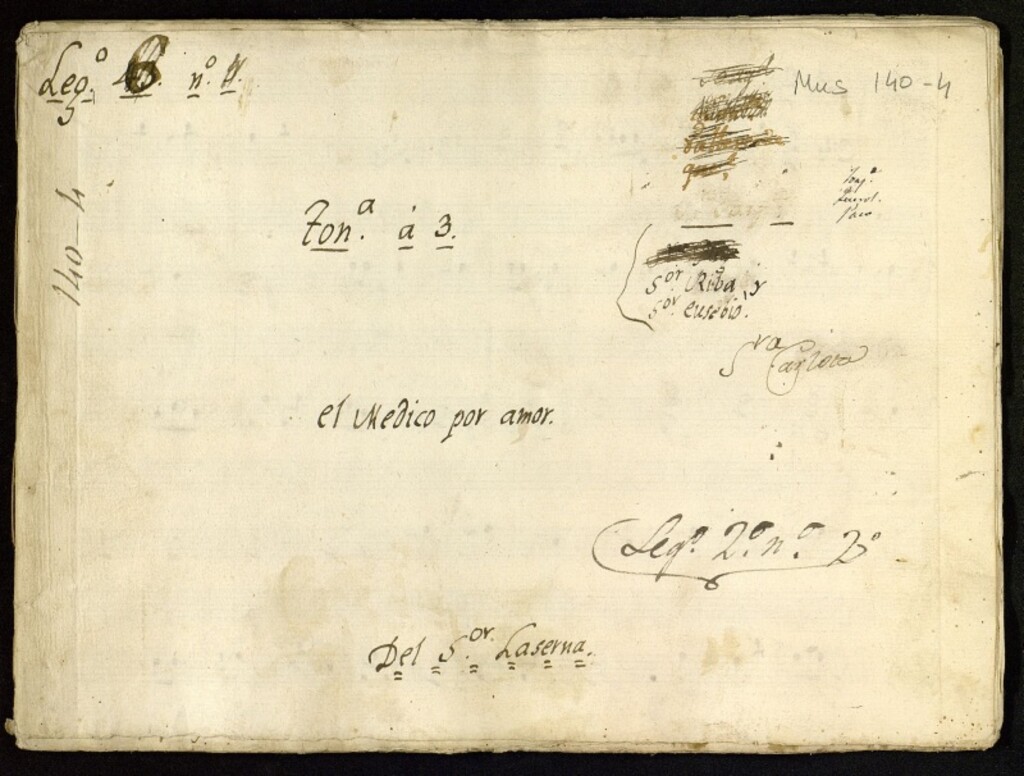 Legº 6 nº
Mus 140-4
140-4
Tonª. á 3.
Sor Riba, y
Sor. eusebio.
Sra Carlota
el Medico por amor.
Legº. 2º. nº. 2º
Del Sor. Laserna.